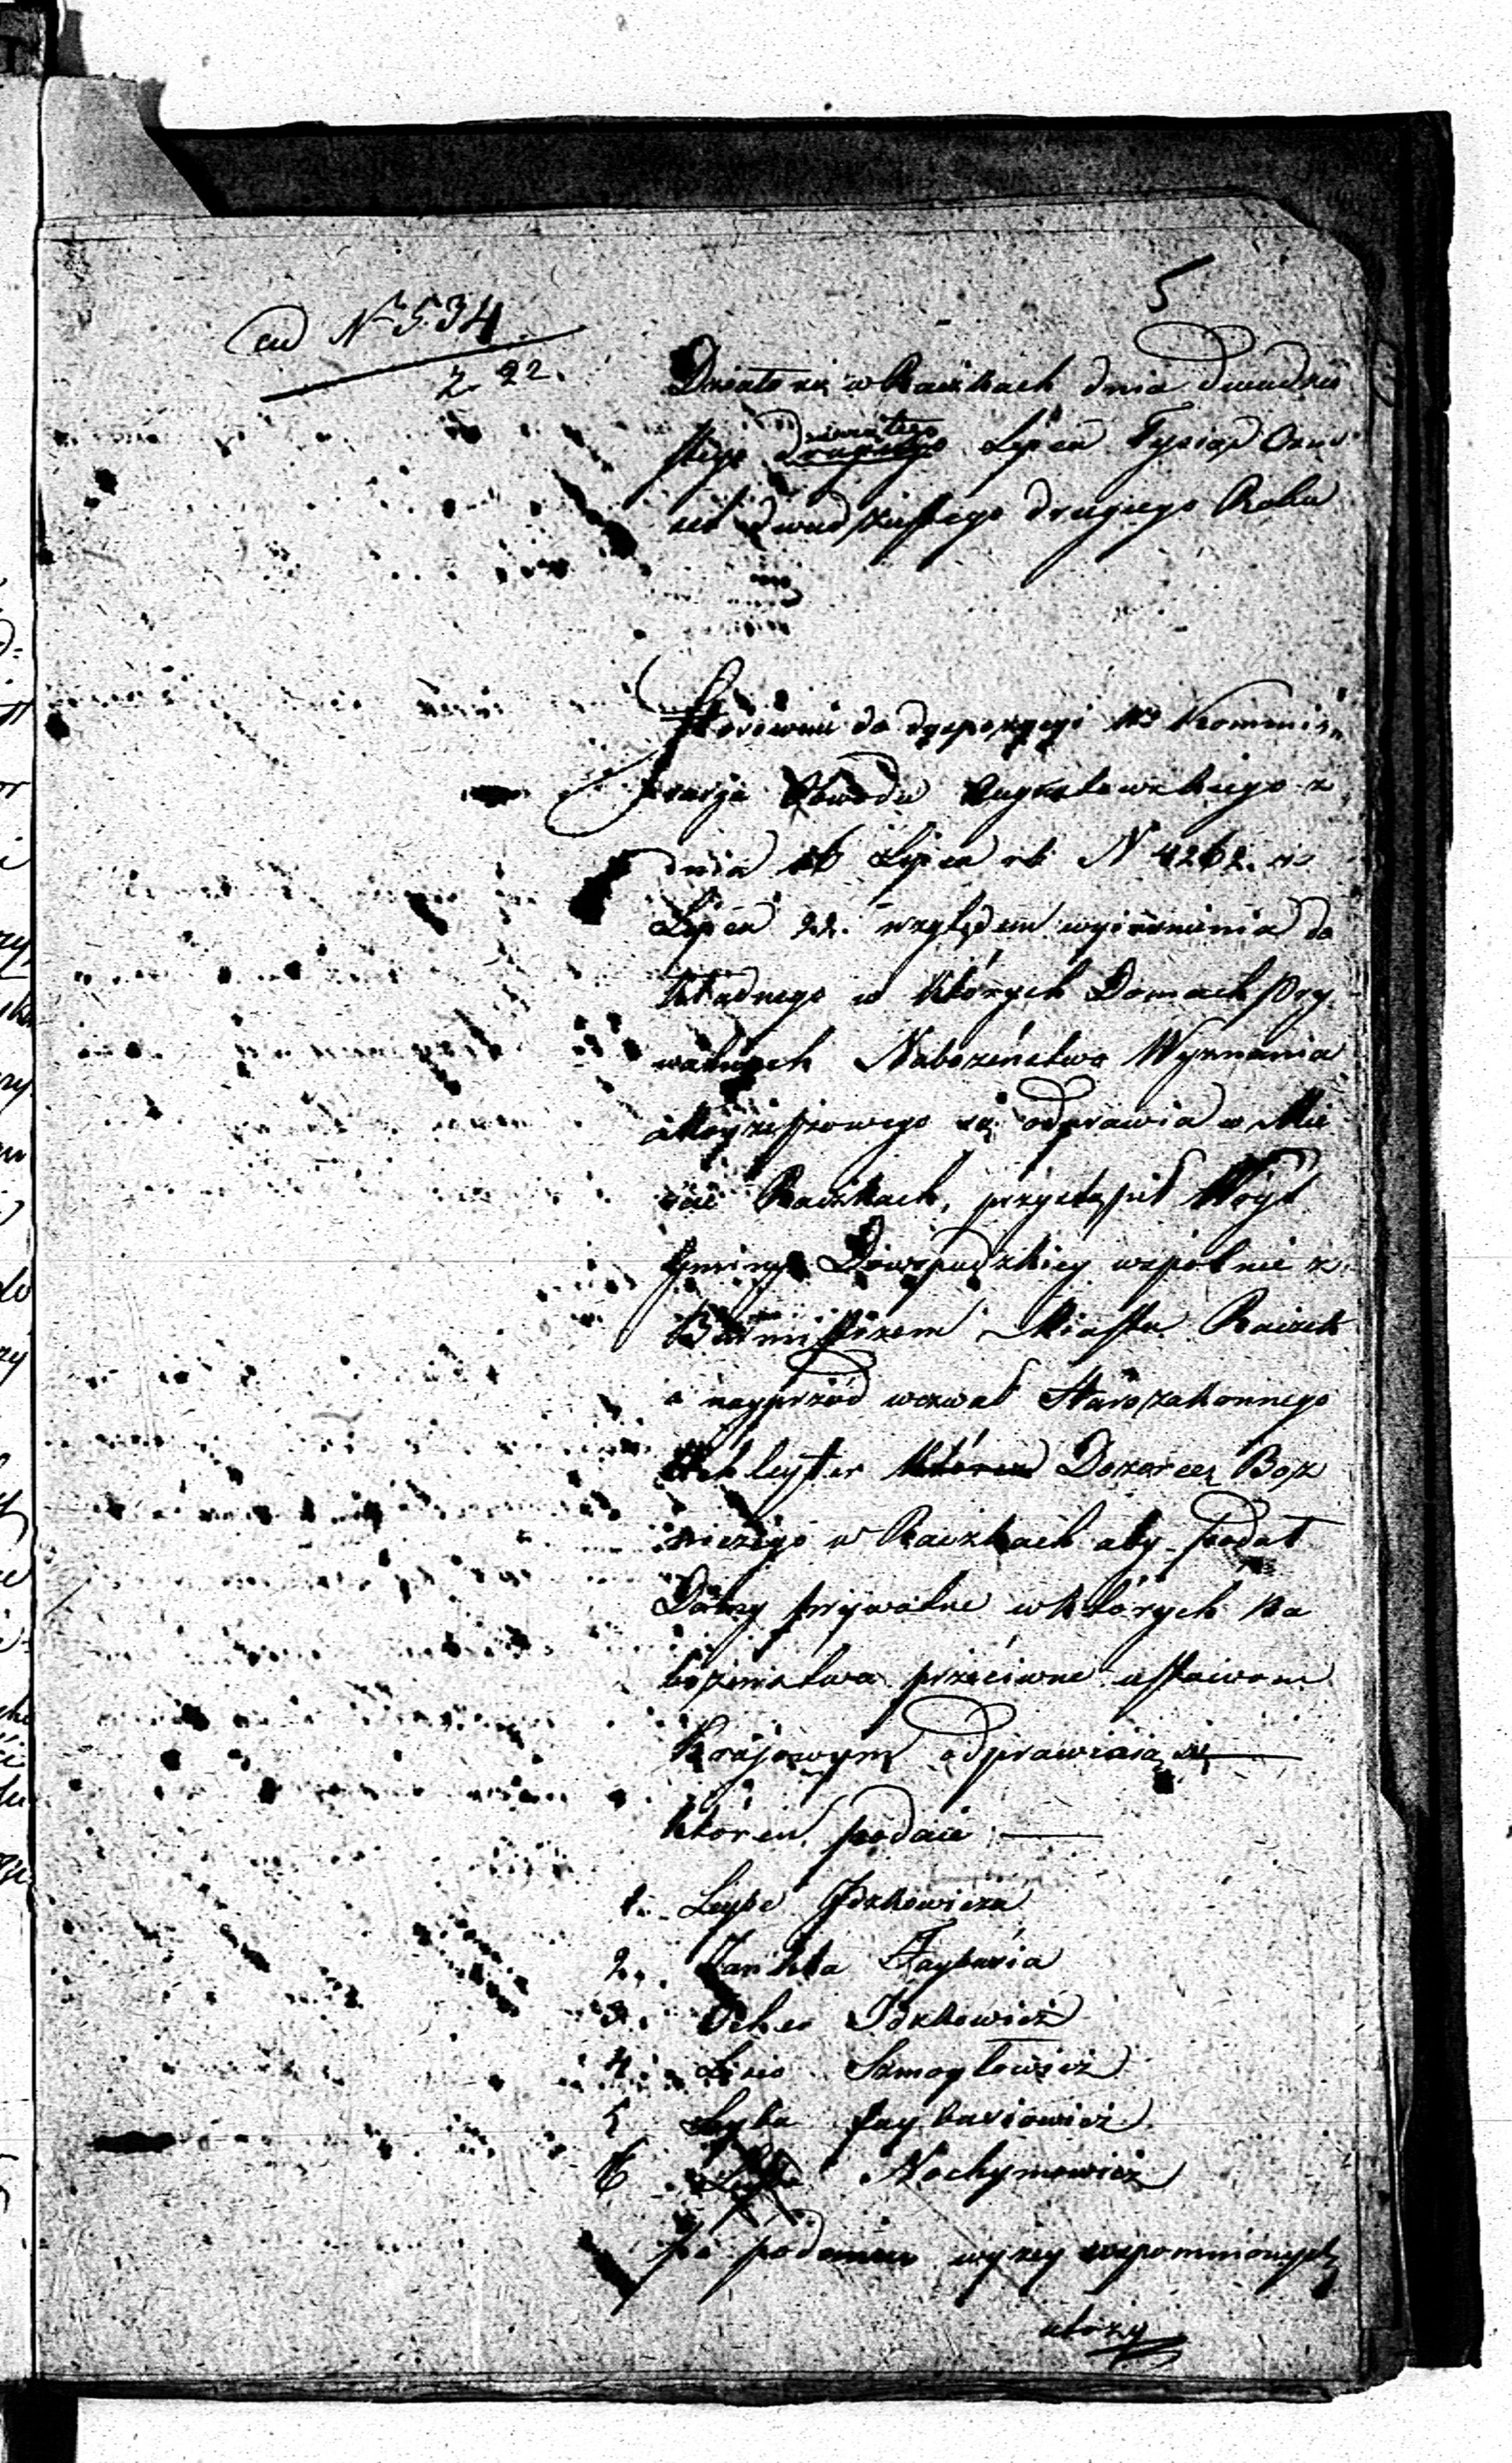 5
ad N 534
2 22.
Działo się w Raczkach dnia dwudzie
stego dziewiątego drugiego Lipca Tysiąc Osm
set dwudziestego drugiego Roku
Stosownie do dyspozycyi Kommis
sarza Obwodu Augustowskiego z
dnia 16 Lipca rb N 4262.
Lipca 22. względem wyiasnienia do
kładnego w których Domach pry
watnych Nabożeństwo Wyznania
Moyżeszowego się odprawia w Mie
scie Raczkach, przystąpił Wóyt
Gminy Dowspudzkiey wspólnie z
Burmistrzem Miasta Raczek
a nayprzód wezwał Starozakonnego
Dozorcę Boż
niczego w Raczkach aby podał
Domy prywatne w których Na
bożenstwa przeciwne ustawom
Krajowym odprawiaią się
któren podaie
1. Leybe Idzkowicza
2. Jankla Faybusia
3. Idzkowicz
4. Szmoyłowicz
5 Leyba Faybusiowicz
6 Nochymowicz
po podaniu wyżey wspomnionych
którzy